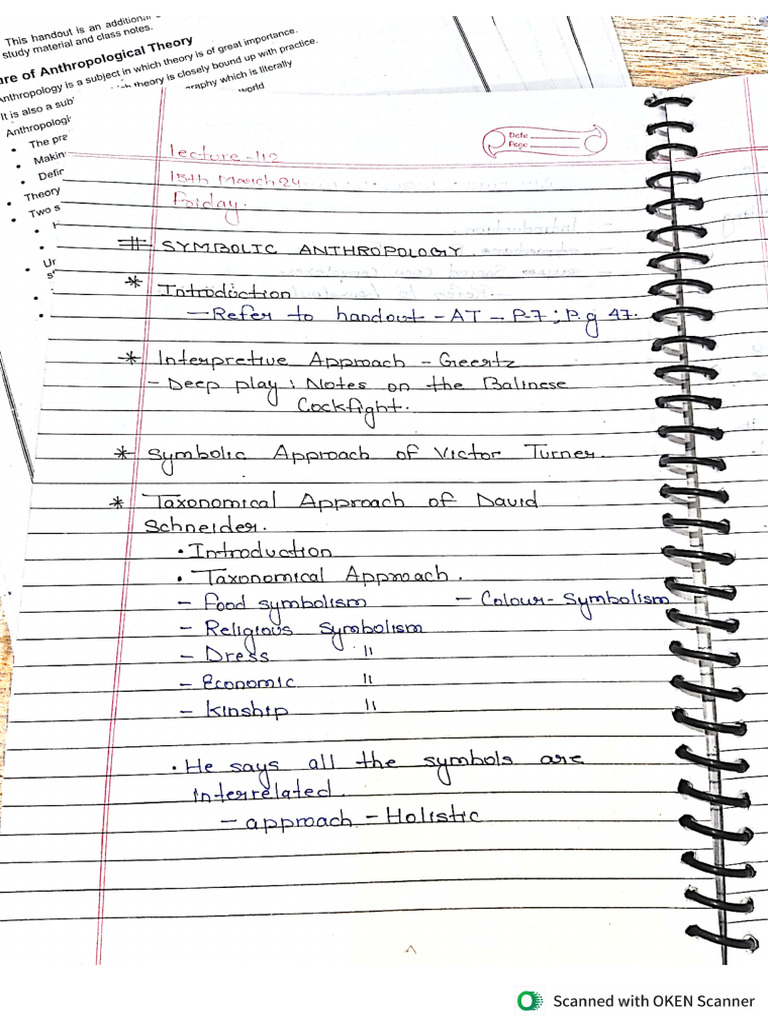 This handout is an additional
study material and class notes.
ure of Anthropological Theory
Anthropology is a subject in which theory is of great importance.
It is also a sub
theory is closely bound up with practice.
Anthropologi
graphy which is literally
world
• The pre
• Makin
• Defin
• Theory
• Two s
Date
Page
Lecture - 112
15th March 24
Friday.
# SYMBOLIC ANTHROPOLOGY
* Introduction
- Refer to handout - AT - P-7; P.g 47.
* Interpretive Approach - Geertz
- Deep play: Notes on the Balinese
Cockfight.
* Symbolic Approach of Victor Turner.
* Taxonomical Approach of David
Schneider.
• Introduction
• Taxonomical Approach.
- Food symbolism - Colour-Symbolism
- Religious symbolism
- Dress "
- Economic "
- Kinship "
• He says all the symbols are
interrelated.
- approach - Holistic
Scanned with OKEN Scanner